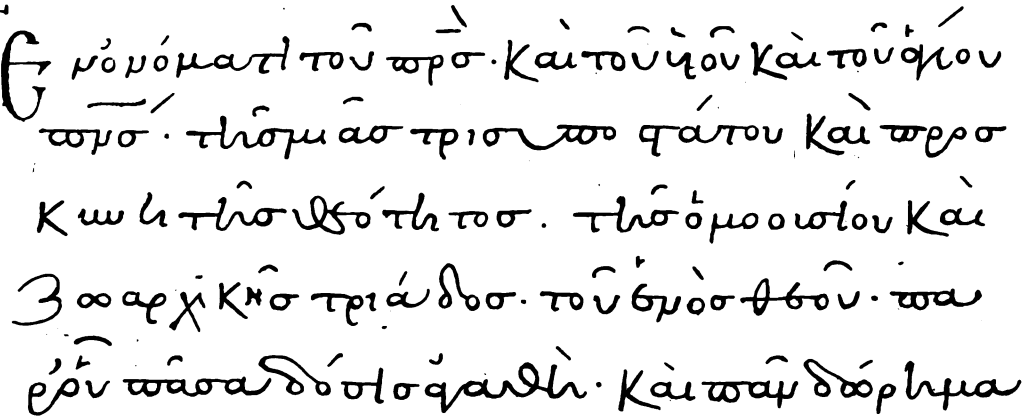 Ἐν ὀνόματι τοῦ πρ̅σ̀· καὶ τοῦ υἱοῦ καὶ τοῦ ἁγίου
πν̅σ́· τῆσ μιᾶσ τρισυποστάτου καὶ προσ
κυνητῆσ θεότητοσ. τῆσ ὁμοουσίου καὶ
ζωαρχικῆσ τριάδοσ. τοῦ ἑνὸσ θεοῦ· πα
ρ’ οὗ πᾶσα δόσισ ἀγαθὴ· καὶ πᾶν δώρημα